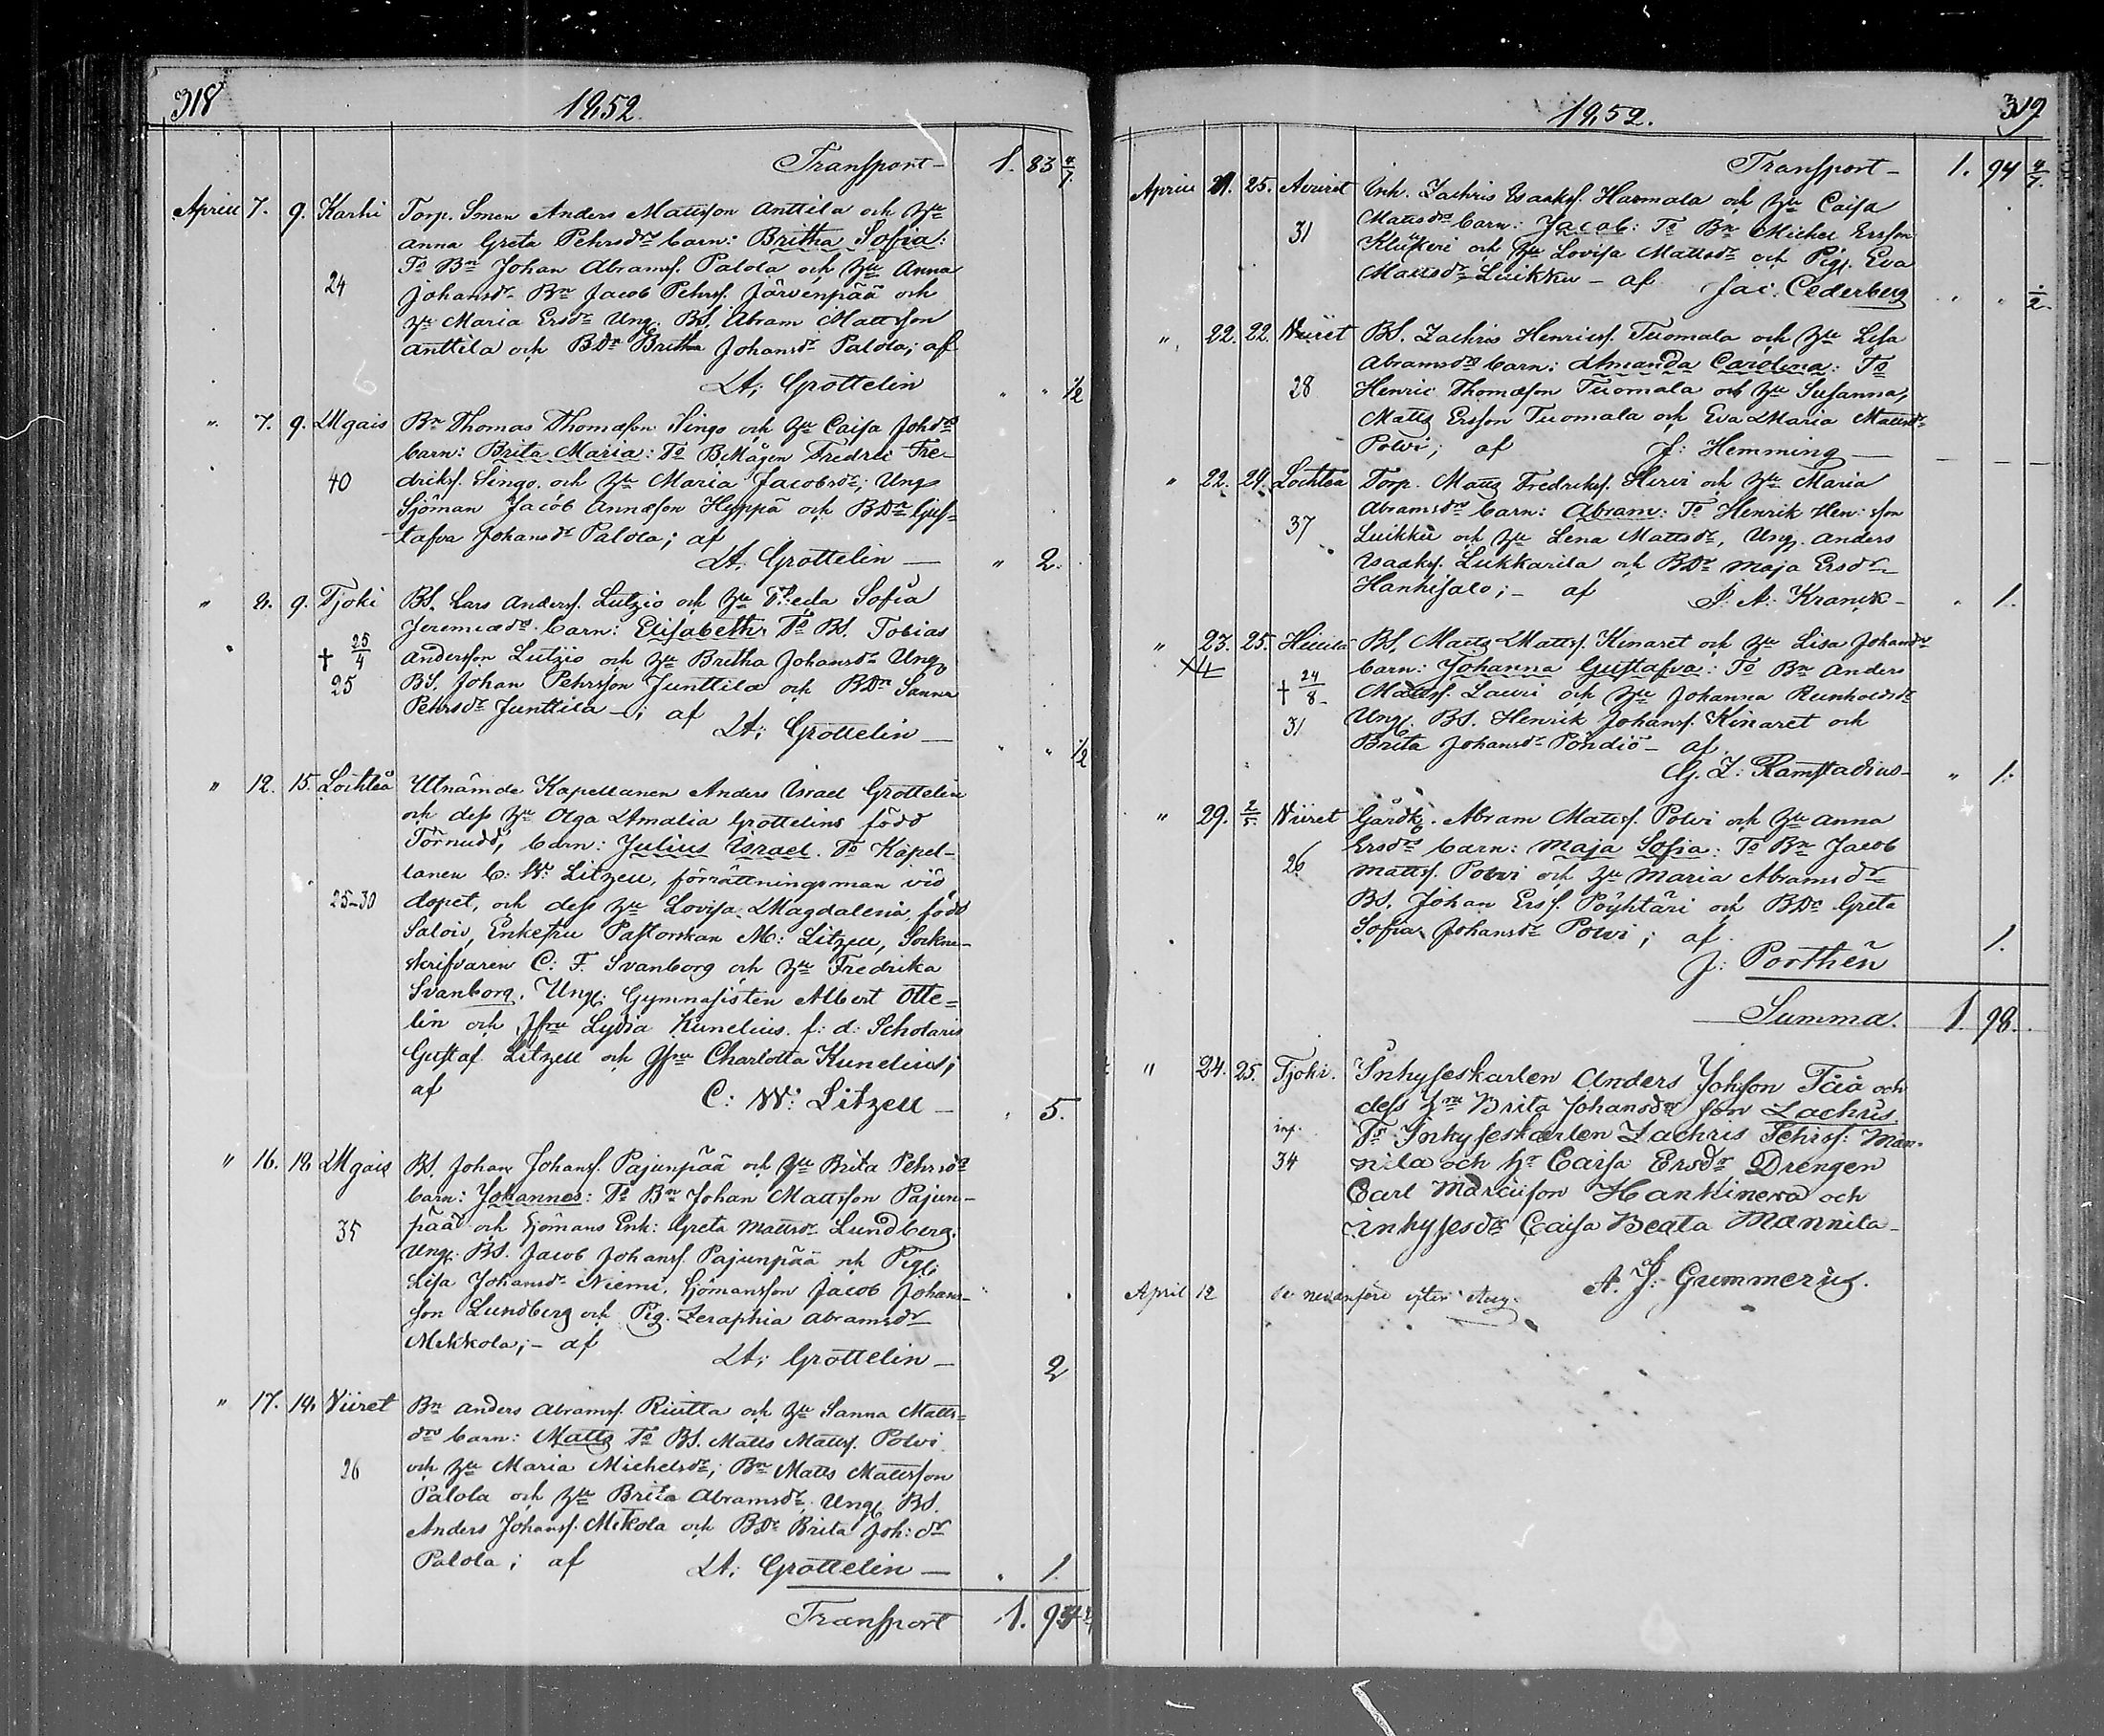 318
1852.
Transport - 1. 83 4/7.
April 7. 9. Karhi Torp. Smen Anders Mattsson Anttila och Hu
Anna Greta Pehrsdrs barn: Britha Sofia:
To Bn Johan Abramss. Palola och Hu Anna
24 Johansdr Bn Jacob Pehrss. Järvenpää och
Hu Maria Ersdr Ung. BS. Abram Mattsson
Anttila och BDr Britha Johansdr Palola; af
A: Grottelin " " 1/2
" 7. 9. Mgais Bn Thomas Thomasson Singo och Hu Caisa Johdrs
barn: Brita Maria: To BMågen Fredric Fre-
40 drikss. Singo. och Hu Maria Jacobsdr; Ung
Sjöman Jacob Annasson Hyppä och BDr Gus-
tafva Johansdr Palola; af
A. Grottelin — " 2.
" 8. 9. Tjoki BS. Lars Anderss. Lutzio och Hu Sofia
Jeremiædrs barn: Elisabeth. To BS. Tobias
† 25/4 Andersson Lutzio och Hu Britha Johansdr Ung
25 BS. Johan Pehrsson Junttila och BDr Sanna
Pehrsdr Junttila -; af
A: Grottelin — " " 1/2
" 12. 15. Lochteå Utnämde Kapellanen Anders Israel Grottelin
och dess Hu Olga Amalia Grottelins född
Törnudd, barn: Julius Israel. To Kapel-
lanen C: W: Litzell, förrättningsman vid
25-30 dopet, och dess Hu Lovisa Magdalena, född
Salovi, Enkefru Pastorskan M: Litzell, Sockne-
skrifvaren C: F. Svanborg och Hu Fredrika
Svanborg. Ung: Gymnasisten Albert Otte-
lin och Jfru Lydia Kunelius. f: d: Scholaris
Gustaf Litzell och Jfru Charlotta Kunelius;
af C: W: Litzell — " 5.
" 16. 18. Mgais BS. Johan Johanss. Pajunpää och Hu Brita Pehrsdrs
barn: Johannes: To Bn Johan Mattsson Pajun-
35 pää och Sjömans Enk: Greta Mattsdr Lundberg.
Ung. BS. Jacob Johanss. Pajunpää och Pig.
Lisa Johansdr Niemi. Sjömansson Jacob Johans-
son Lundberg och Pig. Zeraphia Abramsdr
Mikkola; - af A: Grottelin — 2
" 17. 18. Wiiret Bn Anders Abramss. Riutta och Hu Sanna Matts-
drs barn: Matts To BS. Matts Mattss. Polvi
26 och Hu Maria Michelsdr; Bn Matts Mattsson
Palola och Hu Brita Abramsdr Ung. BS.
Anders Johanss. Mikola och BDr Brita Joh:dr
Palola; af A: Grottelin — " 1.
Transport 1. 94
1852. 319
Transport - 1. 94 4/7.
April 21. 25. Inh. Zachris Isaakss. Harmala och Hu Caisa
31 Mattsdrs barn: Jacob: To Bn Michel Ersson
Klukeri och Hu Lovisa Mattsdr och Pig. Eva
Mattsdr Luikku - af Jac. Cederberg " " 1/2.
" 22. 22. Wiiret BS. Zachris Henricss. Tuomala och Hu Lisa
Abramsdrs barn: Amanda Carolina: To
28 Henric Thomasson Tuomala och Hu Susanna,
Matts Ersson Tuomala och Eva Maria Mattsdr
Polvi; af J: Hemming —
" 22. 24. Lochteå Torp. Matts Fredrikss. Hirvi och Hu Maria
Abramsdrs barn: Abram: To Henrik Hen:sson
37 Luikku och Hu Lena Mattsdr, Ung. Anders
Isaakss. Lukkarila och BDr Maja Ersdr
Hankisalo; - af J. A: Kranck - " 1.
" 23. 25. Hillilä BS. Matts Mattss. Kinaret och Hu Lisa Johansdr
barn: Johanna Gustafva: To Bn Anders
† 24/8 Mattss. Lauri och Hu Johanna Reinholdsdr
31 Ung. BS. Henrik Johanss. Kinaret och
Brita Johansdr Pöndiö - af
G. Z: Ramstadius - " 1.
" 29. 2/5. Wiiret Gårdk. Abram Mattss. Polvi och Hu Anna
Ersdrs barn: Maja Sofia: To Bn Jacob
26 Mattss. Polvi och Hu Maria Abramsdr
BS. Johan Erss. Pöyhtäri och BDr Greta
Sofia Johansdr Polvi; af 1.
J: Porthén
Summa. 1. 98.
" 24. 25. Tjoki. Inhyseskarlen Anders Johsson Tiia och
dess Hu Brita Johansdrs son Zachris
inf. To Inhyseskarlen Zachris Pehrss: Män-
34 nila och Hr Caisa Ersdr Drengen
Carl Marcusson Hankineva och
inhysesdr Caisa Beata Mannila -
af
A. J: Gummerus.
April 12 Se nedanföre efter Aug.